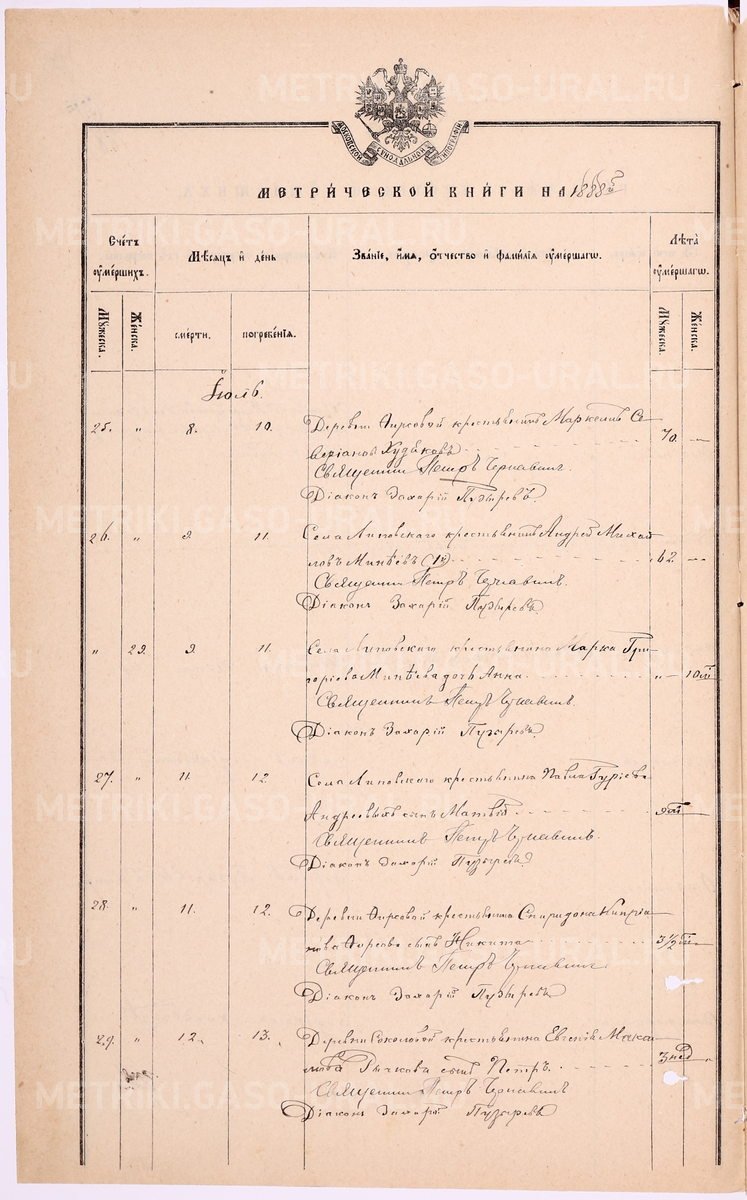 МОСКОВСКОЙ СѴНОДАЛЬНОЙ ТИПОГРАФІИ
МЕТРИЧЕСКОЙ КНИГИ НА 1888й
Счетъ умершихъ.
Мѣсяцъ и день
Званіе, имя, отчество и фамилія умершагѡ.
Лѣта умершагѡ.
Мужеска.
Женска.
смерти.
погребенія.
Мужеска.
Женска.
Іюль.
25. " 8. 10. Деревни Фирсовой крестьянинъ Маркелъ Се-
веріановъ Худяковъ 70. —
Священникъ Петръ
Діаконъ Захарій Пузыревъ.
26. " 9. 11. Села Липовскаго крестьянинъ Андрей Михай-
ловъ Минѣевъ (1й) 62. —
Священникъ Петръ
Діаконъ Захарій Пузыревъ.
" 29. 9. 11. Села Липовскаго крестьянина Марка Гри-
горіева Минѣева дочь Анна. " 10
Священникъ Петръ
Діаконъ Захарій Пузыревъ.
27. " 11. 12. Села Липовскаго крестьянина Павла Гуріева
Андреевыхъ сынъ Матвій
Священникъ Петръ
Діаконъ Захарій Пузыревъ
28. " 11. 12. Деревни Фирсовой крестьянина Спиридона Кипріа-
нова Фирсова сынъ Никита 3 1/2
Священникъ Петръ
Діаконъ Захарій Пузыревъ
29. " 12. 13. Деревни Соколовой крестьянина Евгенія Мака-
Рычкова сынъ Петръ. 3 нед "
Священникъ Петръ
Діаконъ Захарій Пузыревъ
METRIKI.GASO-URAL.RU